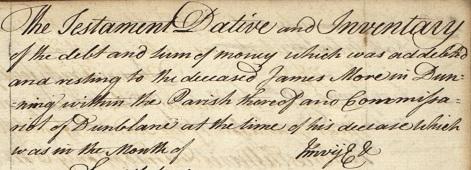 The Testament Dative and Inventary
of the debt and sum of money which was addebted
and resting to the deceased James More in Dun-
=ning within the Parish thereof and Commissa-
riot of Dunblane at the time of his decease which
was in the Month of